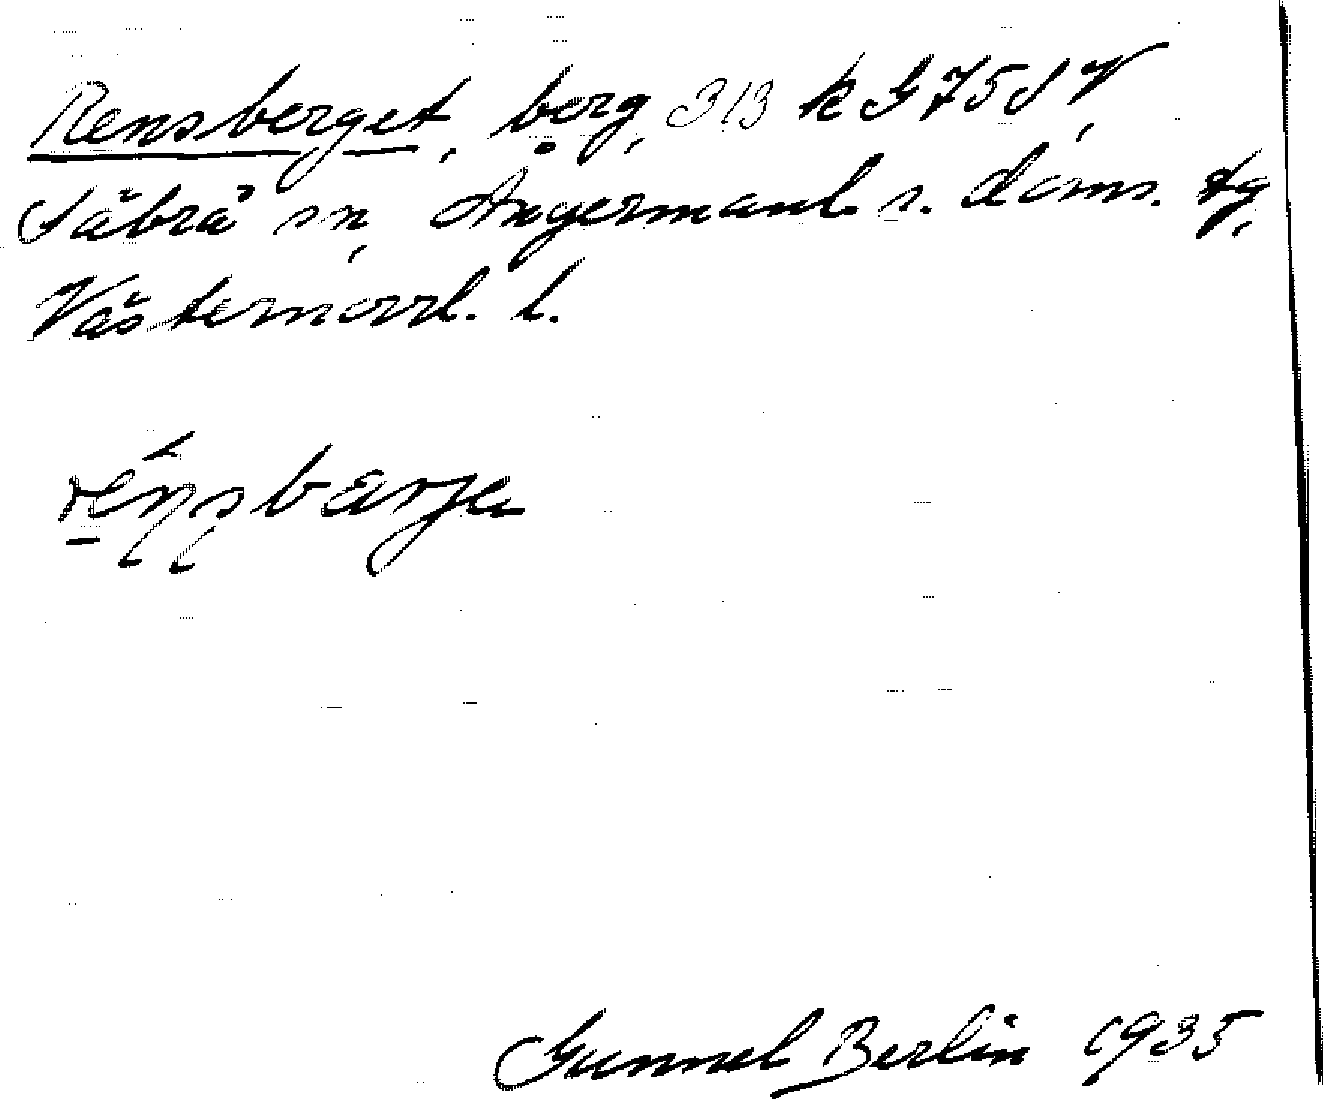 Rensberget, berg, 313 k G 75 d V,
Säbrå sn, Ångermanl. s. doms. tg,
Västernorrl. l.
Gunnel Berlin 1935